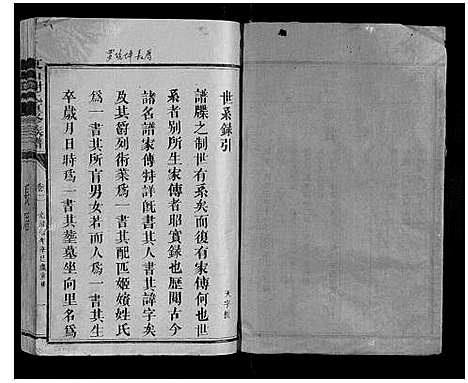 世系録引
譜牒之制世有系矣而復有家傳何也世
系者別所生家傳者耶實録也歷閱古今
諸名譜家傳特詳旣書其人書其諱字矣
及其爵列術業爲一書其配匹姬嬪姓氏
爲一書其所育男女若而人爲一書其生
卒歲月日時爲一書其塟墓坐向里名爲
天字號